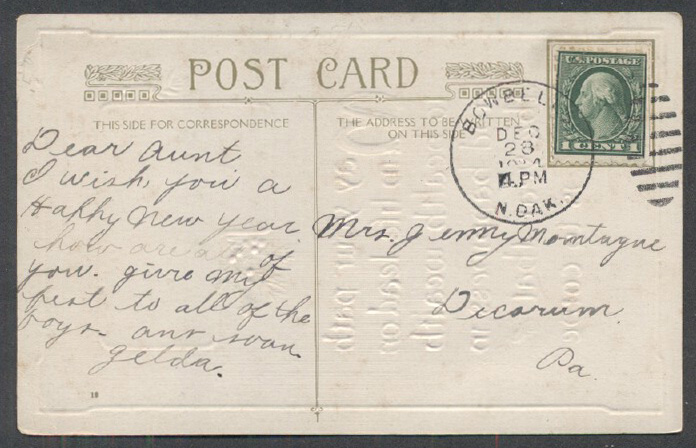 POST CARD
THIS SIDE FOR CORRESPONDENCE
THE ADDRESS TO BE WRITTEN
ON THIS SIDE
U.S. POSTAGE
1 CENT 1
BOWBEL
DEC
28
4 PM
N. DAK.
Dear Aunt
I wish you a
Happy New Year
how are all of
you. give my
best to all of the
boys. ans soon.
Gelda.
Mrs. Jenny Montague
Decorum
Pa.
18